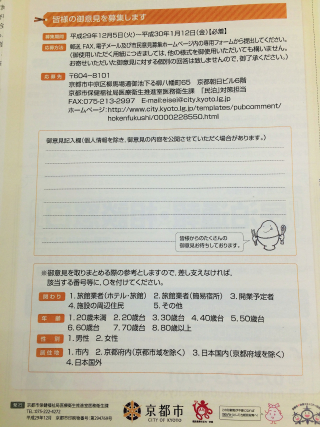 皆様の御意見を募集します
募集期間 平成29年12月5日(火)~平成30年1月12日(金)【必着】
応募方法 郵送、FAX、電子メール及び市民意見募集ホームページ内の専用フォームから提出してください。
(御使用いただく用紙につきましては、他の様式を御使用いただいても構いません。
お寄せいただいた御意見に対する個別の回答は致しませんので、御了承ください。)
応募先 〒604-8101
京都市中京区柳馬場通御池下る柳八幡町65 京都朝日ビル6階
京都市保健福祉局医療衛生推進室医務衛生課 「民泊」対策担当
FAX:075-213-2997 E-mail:eisei@city.kyoto.lg.jp
ホームページ:http://www.city.kyoto.lg.jp/templates/pubcomment/
hokenfukushi/0000228550.html
御意見記入欄(個人情報を除き、御意見の内容を公開させていただく場合があります。)
皆様からのたくさんの
御意見お待ちしております。
※御意見を取りまとめる際の参考としますので、差し支えなければ、
該当する番号等に、○を付けてください。
関わり 1.旅館業者(ホテル・旅館) 2.旅館業者(簡易宿所) 3.開業予定者
4.施設の周辺住民 5.その他
年齢 1.20歳未満 2.20歳台 3.30歳台 4.40歳台 5.50歳台
6.60歳台 7.70歳台 8.80歳以上
性別 1.男性 2.女性
居住地 1.市内 2.京都府内(京都市域を除く) 3.日本国内(京都府域を除く)
4.日本国外
発行 京都市保健福祉局医療衛生推進室医務衛生課
TEL 075-222-4272
平成29年12月 京都市印刷物番号 第294769号
京都市
CITY OF KYOTO